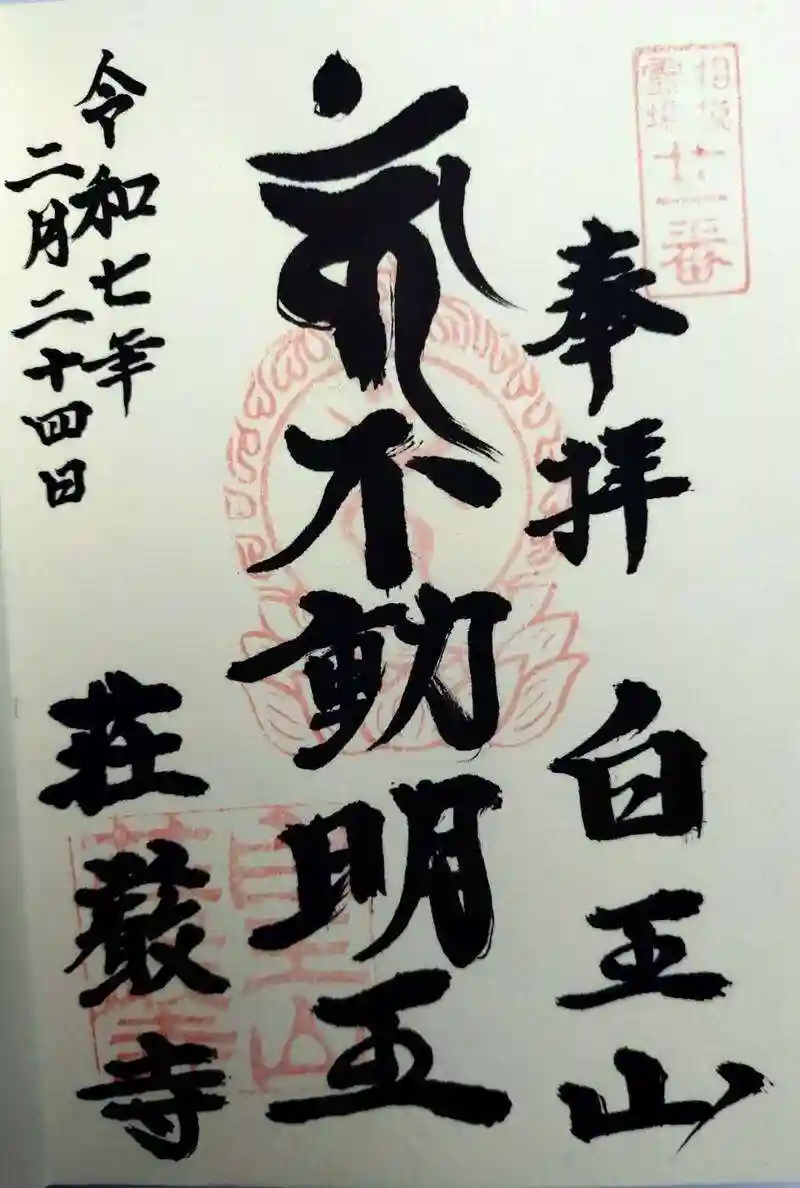 相模
霊場
廿一番
奉拝
白王山
不動明王
令和七年
二月二十四日
荘厳寺